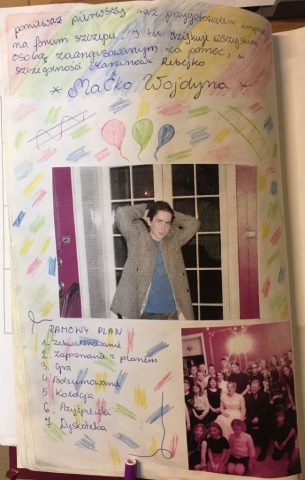 ponieważ pierwszy raz przygotowałem imprezę
na forum szczepu. Tu dziękuję wszystkim
osobą zaangażowanym za pomoc, w
szczególności Marcinowi
* Maćko Wojdyna *
RAMOWY PLAN
1. Zakwaterowanie
2. Zapoznanie z planem
3. Gra
4. Podsumowanie
5. Kolacja
6.
7. Dyskoteka